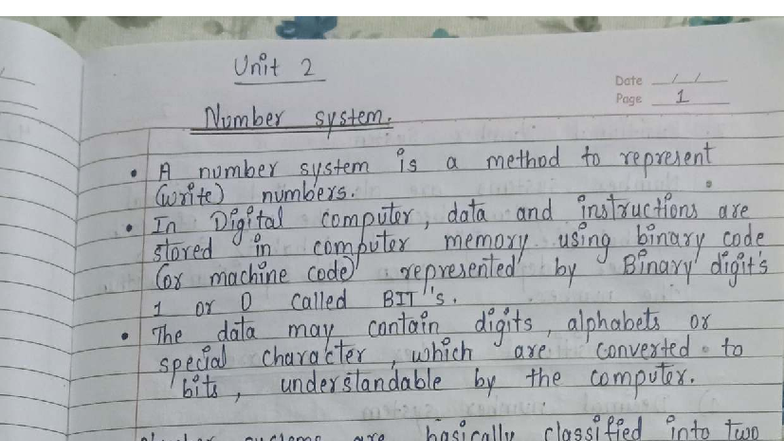 Unit 2
Date / /
Page 1
Number system.
• A number system is a method to represent
(write) numbers.
• In Digital computer, data and instructions are
stored in computer memory using binary code
(or machine code) represented by Binary digit's
1 or 0 called BIT's.
• The data may contain digits, alphabets or
special character, which are converted to
bits, understandable by the computer.
are basically classified into two